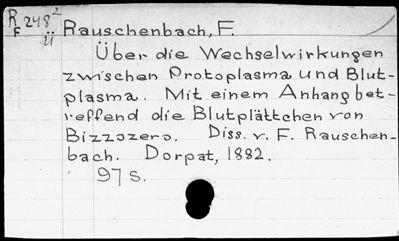 R 248²
F Ü
Rauschenbach, F.
Über die Wechselwirkungen
zwischen Protoplasma und Blut-
plasma. Mit einem Anhang bet-
reffend die Blutplättchen von
Bizzozero. Diss. v. F. Rauschen-
bach. Dorpat, 1882.
97 s.